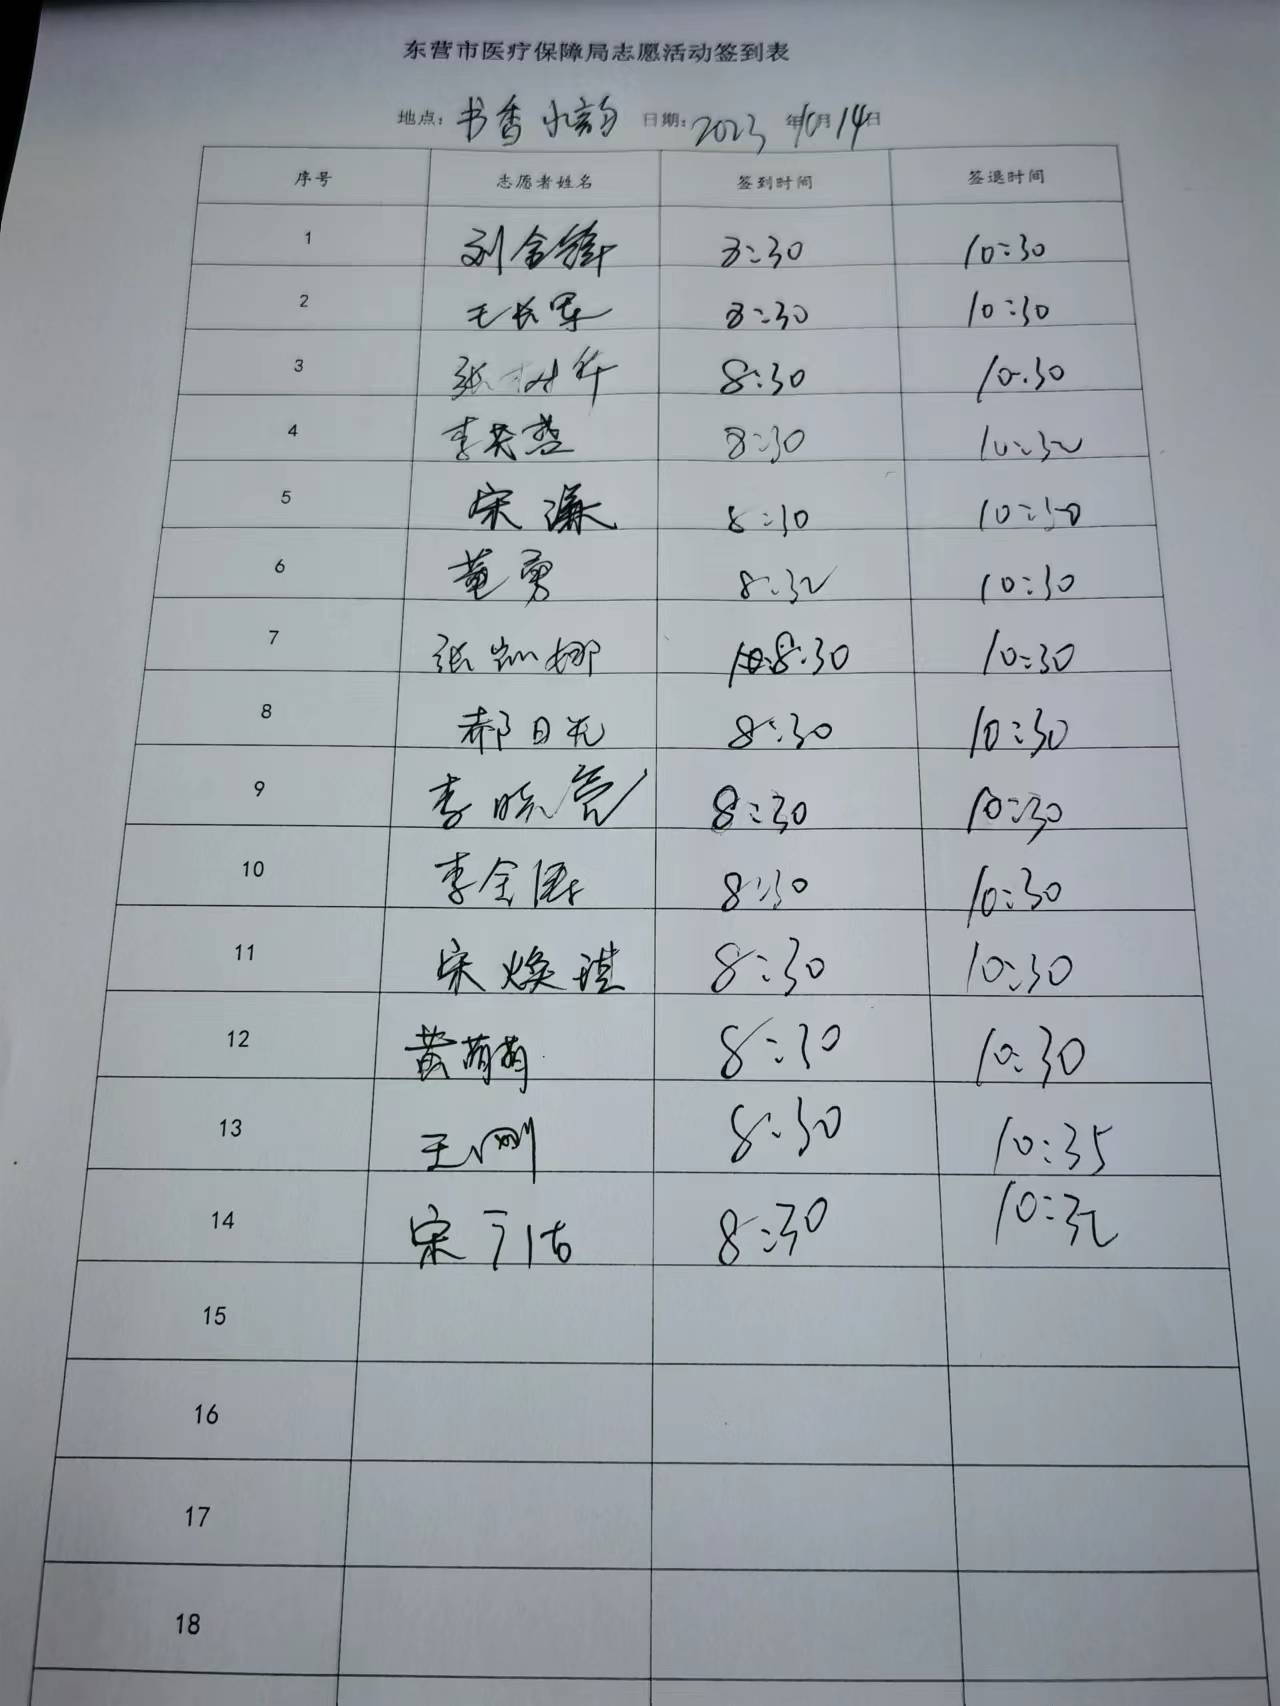 东营市医疗保障局志愿活动签到表
地点：书香水韵 日期：2023年10月14日
序号 志愿者姓名 签到时间 签退时间
1 刘金锋 8:30 10:30
2 王长军 8:30 10:30
3 张树华 8:30 10:30
4 李英燕 8:30 10:30
5 宋濂 8:30 10:30
6 董勇 8:30 10:30
7 张凯娜 8:30 10:30
8 郝日光 8:30 10:30
9 李晓亮 8:30 10:30
10 李全 8:30 10:30
11 宋焕琪 8:30 10:30
12 黄萌萌 8:30 10:30
13 王刚 8:30 10:35
14 宋 8:30 10:30
15
16
17
18